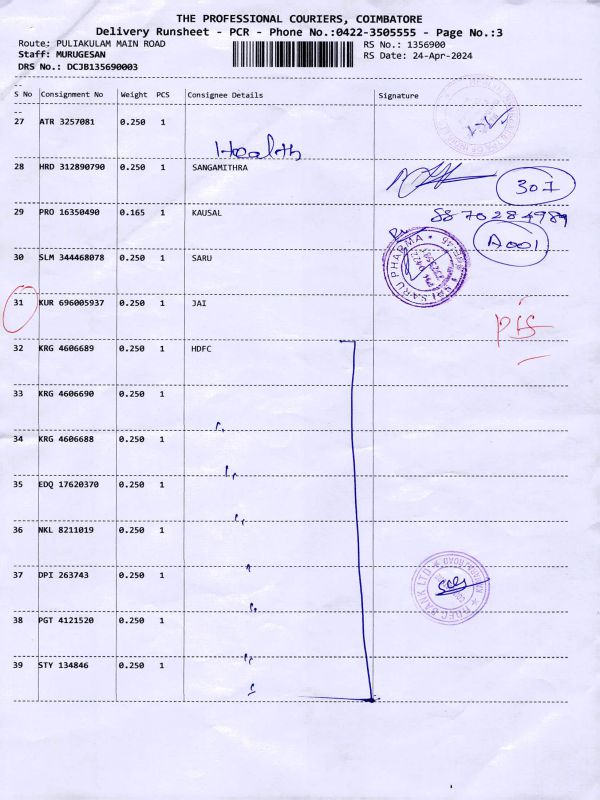 THE PROFESSIONAL COURIERS, COIMBATORE
Delivery Runsheet - PCR - Phone No.:0422-3505555 - Page No.:3
Route: PULIAKULAM MAIN ROAD RS No.: 1356900
Staff: MURUGESAN RS Date: 24-Apr-2024
DRS No.: DCJB135690003
S No Consignment No Weight PCS Consignee Details Signature
27 ATR 3257081 0.250 1
Health
28 HRD 312890790 0.250 1 SANGAMITHRA
301
29 PRO 16350490 0.165 1 KAUSAL
8870284989
A001
30 SLM 344468078 0.250 1 SARU
SARU PHARMA
31 KUR 696005937 0.250 1 JAI
32 KRG 4606689 0.250 1 HDFC
33 KRG 4606690 0.250 1
34 KRG 4606688 0.250 1
35 EDQ 17620370 0.250 1
36 NKL 8211019 0.250 1
37 DPI 263743 0.250 1
HDFC BANK LTD
38 PGT 4121520 0.250 1
39 STY 134846 0.250 1